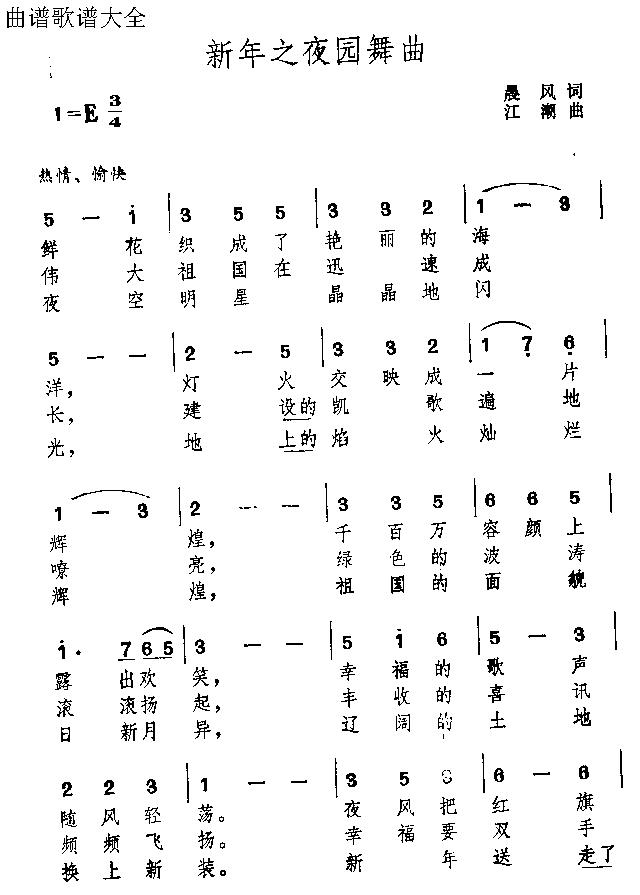 曲谱歌谱大全
新年之夜园舞曲
晨 风 词
1=E 3/4
江 潮 曲
热情、愉快
5 — i | 3 5 5 | 3 3 2 | 1 — 3 |
鲜 花 织 成 了 艳 丽 的 海
伟 大 祖 国 在 迅 速 成
夜 空 明 星 晶 晶 地 闪
5 — — | 2 — 5 | 3 3 2 | 1 7̣ 6̣ |
洋, 灯 火 交 映 成 一 片
长, 建 设的 凯 歌 遍 地
光, 地 上的 焰 火 灿 烂
1 — 3 | 2 — — | 3 3 5 | 6 6 5 |
辉 煌, 千 百 万 容 颜 上
嘹 亮, 绿 色 的 波 涛
辉 煌, 祖 国 的 面 貌
i· 7 6 5 | 3 — — | 5 i 6 | 5 — 3 |
露 出 欢 笑, 幸 福 的 歌 声
滚 滚 扬 起, 丰 收 的 喜 讯
日 新 月 异, 辽 阔 的 土 地
2 2 3 | 1 — — | 3 5 6 | 6 — 6 |
随 风 轻 荡。 夜 风 把 红 旗
频 频 飞 扬。 幸 福 要 双 手
换 上 新 装。 新 年 送 走了